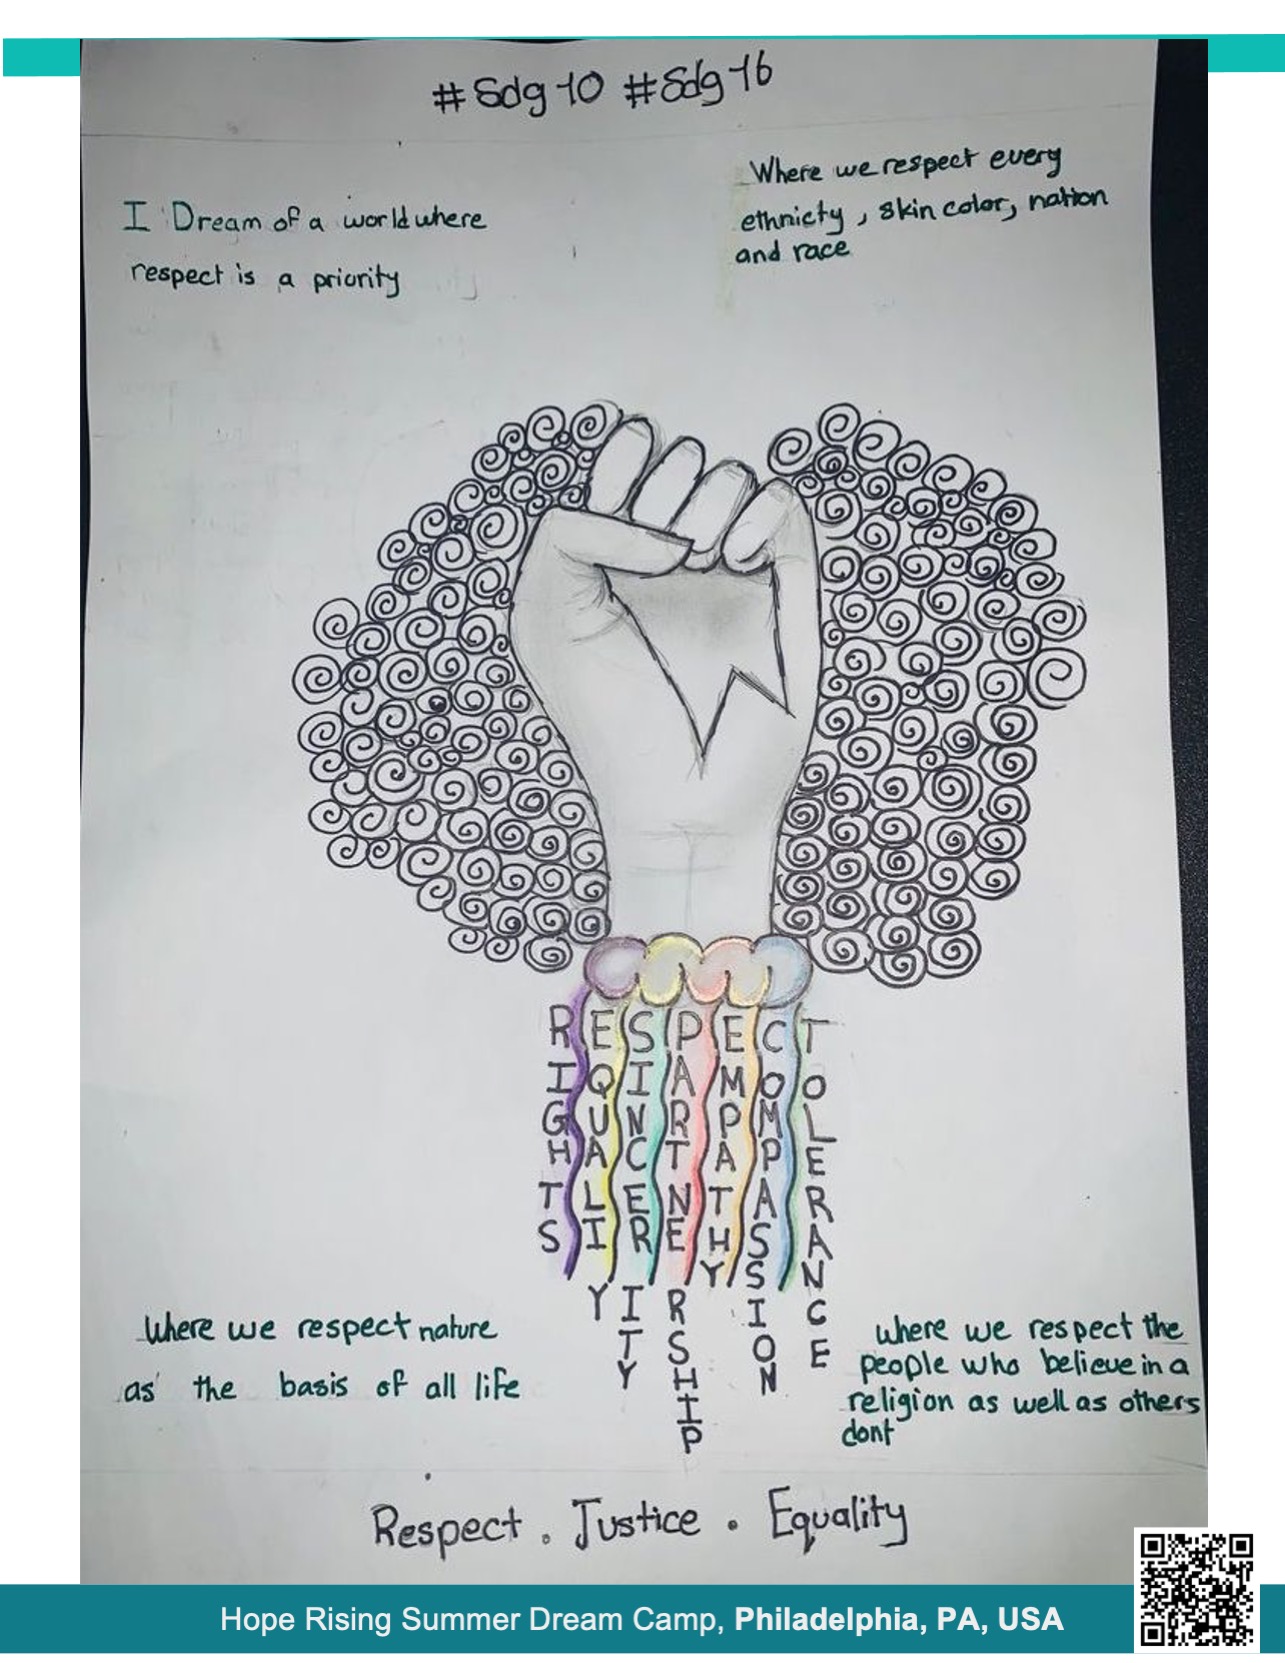 #Sdg 10 #Sdg 16
I Dream of a world where
respect is a priority
Where we respect every
ethnicty, skin color, nation
and race
RESPECT
RIGHTS
EQUALIY
SINCERITY
PARTNERSHIP
EMPATHY
COMPASSION
TOLERANCE
Where we respect nature
as the basis of all life
where we respect the
people who believe in a
religion as well as others
dont
Respect . Justice . Equality
Hope Rising Summer Dream Camp, Philadelphia, PA, USA